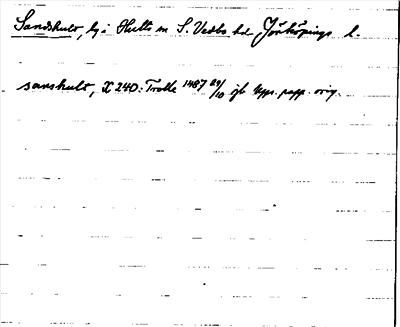 Sandshult, by i Hults sn S. Vedbo hd Jönköpings l.
sanshult, X 240: Trolle 1487 29/10 jb Upps. papp. orig.